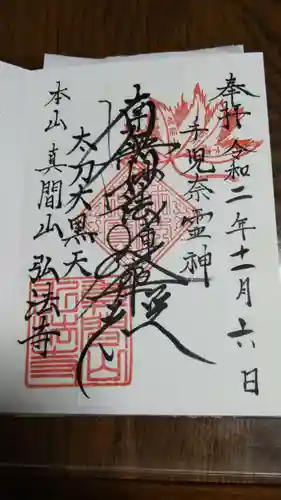 奉拝 令和二年十一月十六日
手児奈霊神
南無妙法蓮華経
太刀大黒天
本山 真間山 弘法寺